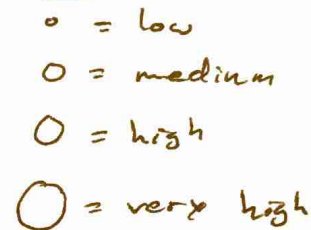 o = low
O = medium
O = high
O = very high